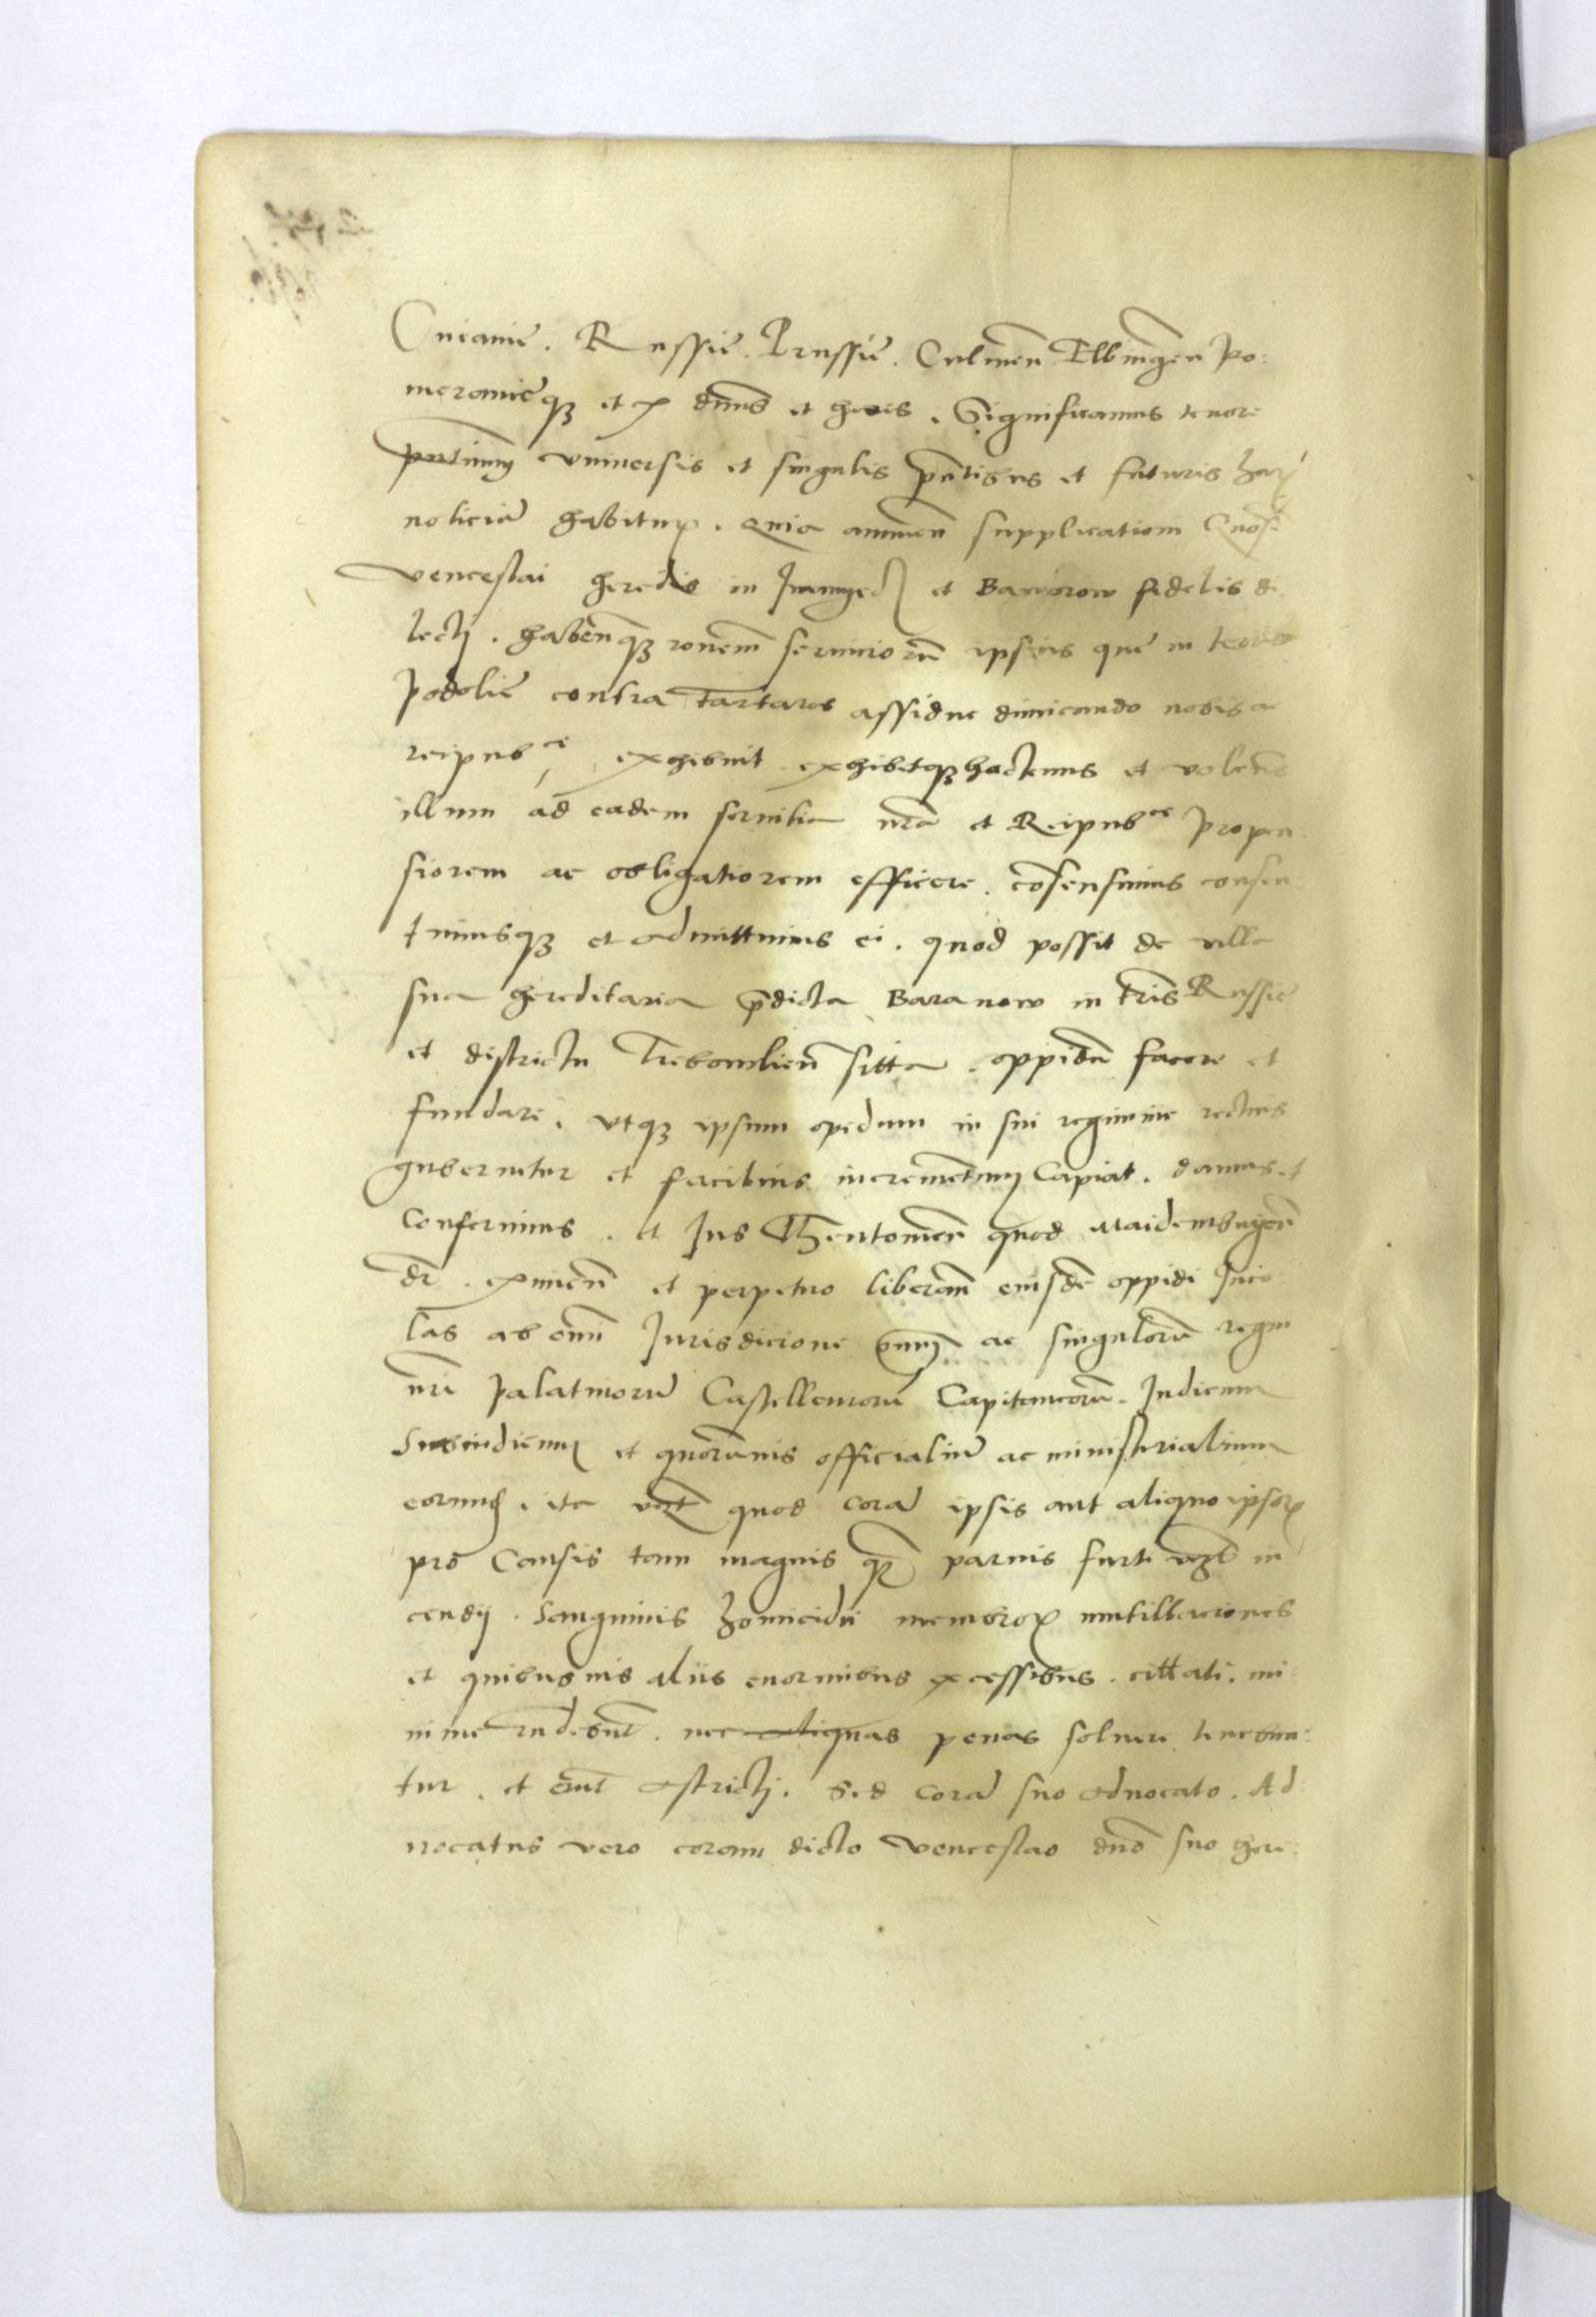 Cuiavie. Russie. Prussie. Culmen̄ Elbingen̄ Po:
meranieqȝ etc dn̄us et heres. Significamus tenore
pn̄tium vniversis et singulis pn̄tibus et futuris har̄
noticiā habitur̄. Quia annuen̄ supplicationi Gn̄osi
Venceslai heredis in et Baworow fidelis di
lecti. habenqȝ ronem serviciorū ipsius que in terris
Podolie contra Tartaros assidue dimicando nobis ac
reipubce exhibuit exhibetqȝ hactenus et volen̄s
illum ad eadem servitia nr̄a et Reipubce propen
siorem ac obligatiorem efficere. cōsensimus consen
timusqȝ et admittimus ei. quod possit de villa
sua hereditaria p̄dicta Baranow in tr̄is Russie
et districtu Trebowlien̄ sitta. oppidū facere et
fundare. vtqȝ ipsum opidum in sui regimine rectius
gubernetur et facilius incrementum Capiat. damus et
conferimus. et Jus Theutonicū quod Maidemburgen̄
dr̄. eximen̄ et perpetuo liberan̄ eiusdē oppidi Inco:
las ab omī Jurisdicione omnium ac singulorū regni
nr̄i Palatinorū Castellanorū Capitaneorū. Judicum
Subiudicum et quorūvis officialiū ac ministerialium
eorund. ita vt quod corā ipsis aut aliquo ipsor̄
pro Causis tam magnis qȝ parvis furti in
cendij. Sanguinis homicidii membror̄ mutillaciones
et quibusvis aliis enormibus excessibus. cittati. mi:
nime rn̄debunt. nec aliquas penas soluere tenebun:
tur. et erūt astricti. Sed corā suo aduocato. Ad:
uocatus vero coram dicto Venceslao dn̄o suo here: